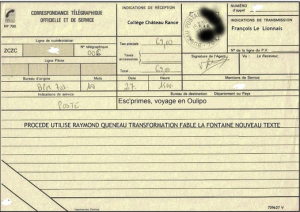 CORRESPONDANCE TÉLÉGRAPHIQUE
OFFICIELLE ET DE SERVICE
PT 702
INDICATIONS DE RÉCEPTION
Collège Château Rance
NUMÉRO
d'appel
INDICATIONS DE TRANSMISSION
François Le Lionnais
Ligne de numérotation
ZCZC
N° télégraphique
Taxe principale
Ligne Pilote
N° de la ligne du P.V.
Taxe
Total
Signature de l'Agent
Bureau d'origine
Mots
Date
Heure
Mentions de Service
27
Bureau de destination
Département ou Pays
Esc'primes, voyage en Oulipo
PROCEDE UTILISE RAYMOND QUENEAU TRANSFORMATION FABLE LA FONTAINE NOUVEAU TEXTE